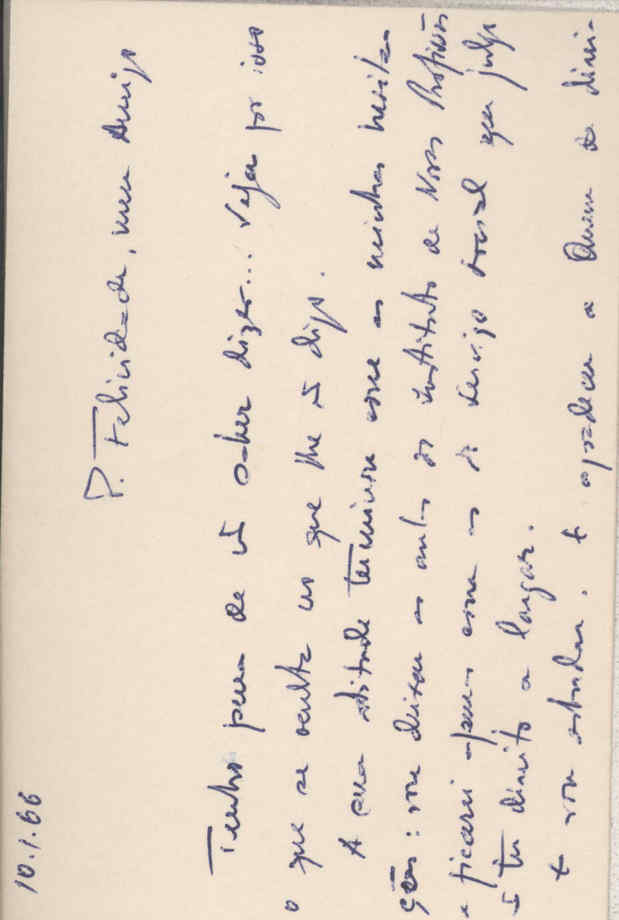 10.1.66
P. Felicidade, meu Amigo
Tenho pena de ñ saber dizer... Veja por isso
o que se oculta no que lhe ñ digo.
A sua atitude terminou com as minhas hesita-
ções: vou deixar as aulas do Instituto de Novas Profissões
e ficarei apenas com as do Serviço Social que julgo
ñ ter direito a largar.
E vou estudar. E agradecer a Quem